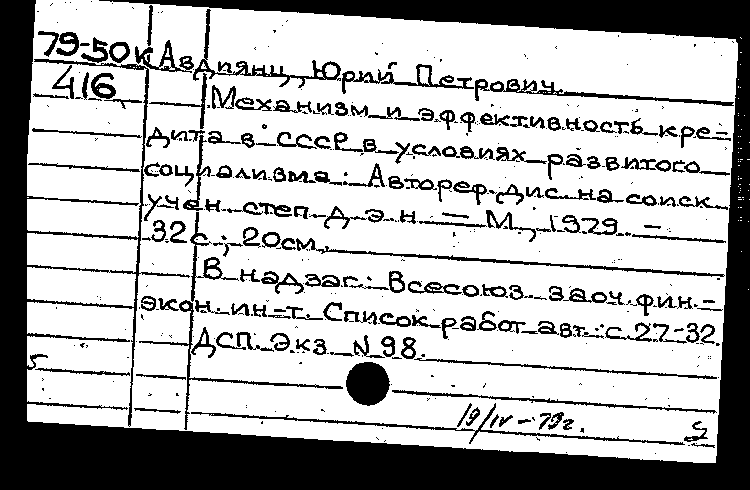 79-50к Авдиянц, Юрий Петрович.
416 Механизм и эффективность кре-
дита в СССР в условиях развитого
социализма: Автореф. дис. на соиск.
учен. степ. д. э. н. — М., 1979. —
32 с.; 20 см.
В надзаг.: Всесоюз. заоч. фин.-
экон. ин-т. Список работ авт.: с. 27-32.
ДСП. Экз. N 98.
5
19/IV - 79г.